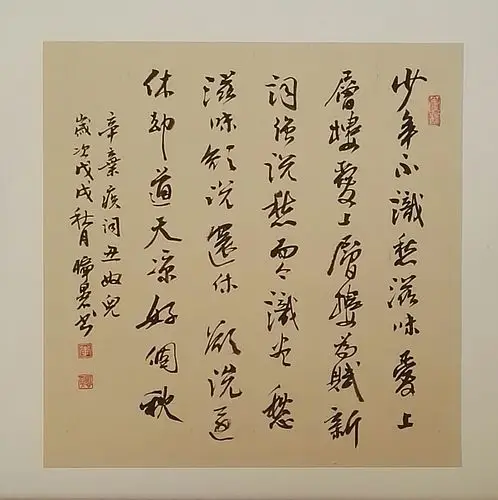 少年不識愁滋味愛上
層樓愛上層樓為賦新
詞強說愁而今識盡愁
滋味欲說還休欲說還
休却道天涼好個秋
辛棄疾詞丑奴兒
歲次戊戌秋月書